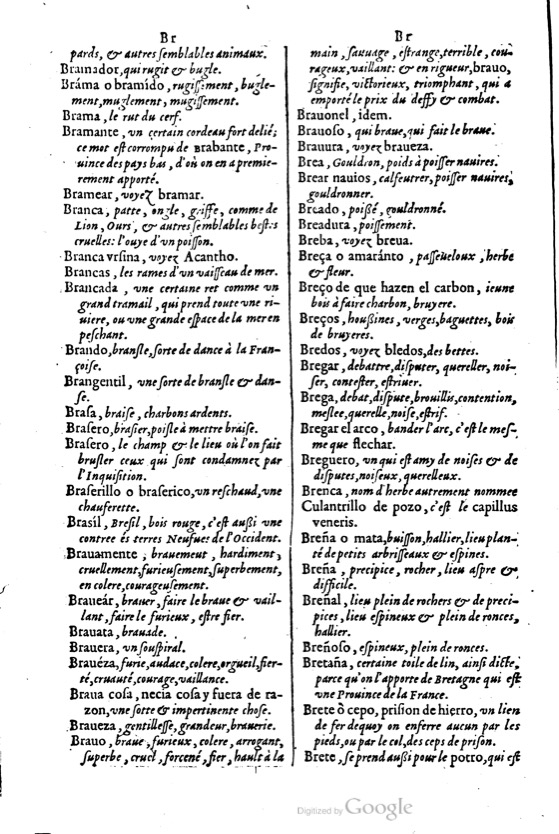 Br
pards, & autres ſemblables animaux.
Bramador, qui rugit & bugle.
Bráma o bramído, rugiſſement, bugle-
ment, muglement, mugiſſement.
Brama, le rut du cerf.
Bramante, vn certain cordeau fort delié;
ce mot eſt corrompu de Brabante, Pro-
uince des pays bas, d'où on en a premie-
rement apporté.
Bramear, voyez bramar.
Branca, patte, ongle, griffe, comme de
Lion, Ours, & autres ſemblables beſtes
cruelles: l'ouye d'vn poiſſon.
Branca vrſina, voyez Acantho.
Brancas, les rames d'vn vaiſſeau de mer.
Brancada, vne certaine ret comme vn
grand tramail, qui prend toute vne ri-
uiere, ou vne grande eſpace de la mer en
peſchant.
Brando, branſle, ſorte de dance à la Fran-
çoiſe.
Brangentil, vne ſorte de branſle & dan-
ſe.
Braſa, braiſe, charbons ardents.
Braſero, braſier, poiſle à mettre braiſe.
Braſero, le champ & le lieu où l'on fait
bruſler ceux qui ſont condamnez par
l'Inquiſition.
Braſerillo o braſerico, vn reſchaud, vne
chauferette.
Braſil, Breſil, bois rouge, c'eſt auſſi vne
contree és terres Neufues de l'Occident.
Brauamente, brauement, hardiment,
cruellement, furieuſement, ſuperbement,
en colere, courageuſement.
Braueár, brauer, faire le braue & vail-
lant, faire le furieux, eſtre fier.
Brauata, brauade.
Brauera, vn ſouſpiral.
Brauéza, furie, audace, colere, orgueil, fier-
té, cruauté, courage, vaillance.
Braua coſa, necia coſa y fuera de ra-
zon, vne ſotte & impertinente choſe.
Braueza, gentilleſſe, grandeur, brauerie.
Brauo, braue, furieux, colere, arrogant,
ſuperbe, cruel, forcené, fier, hault à la
Br
main, ſauuage, eſtrange, terrible, cou-
rageux, vaillant: & en rigueur, brauo,
ſignifie, victorieux, triomphant, qui a
emporté le prix du deffy & combat.
Brauonel, idem.
Brauoſo, qui braue, qui fait le braue.
Brauura, voyez braueza.
Brea, Gouldron, poids à poiſſer nauires.
Brear nauios, calfeutrer, poiſſer nauires,
gouldronner.
Breado, poiſſé, gouldronné.
Breadura, poiſſement.
Breba, voyez breua.
Breça o amaránto, paſſeueloux, herbe
& fleur.
Breço de que hazen el carbon, ieune
bois à faire charbon, bruyere.
Breços, houſſines, verges, baguettes, bois
de bruyeres.
Bredos, voyez bledos, des bettes.
Bregar, debattre, diſputer, quereller, noi-
ſer, conteſter, eſtriuer.
Brega, debat, diſpute, brouillis, contention,
meſlee, querelle, noiſe, eſtrif.
Bregar el arco, bander l'arc, c'eſt le meſ-
me que flechar.
Breguero, vn qui eſt amy de noiſes & de
diſputes, noiſeux, querelleux.
Brenca, nom d'herbe autrement nommee
Culantrillo de pozo, c'eſt le capillus
veneris.
Breña o mata, buiſſon, hallier, lieu plan-
té de petits arbriſſeaux & eſpines.
Breña, precipice, rocher, lieu aſpre &
difficile.
Breñal, lieu plein de rochers & de preci-
pices, lieu eſpineux & plein de ronces,
hallier.
Breñoſo, eſpineux, plein de ronces.
Bretaña, certaine toile de lin, ainſi dicte,
parce qu'on l'apporte de Bretagne qui eſt
vne Prouince de la France.
Brete ò cepo, priſion de hierro, vn lien
de fer dequoy on enferre aucun par les
pieds, ou par le col, des ceps de priſon.
Brete, ſe prend auſſi pour le potro, qui eſt
Digitized by Google